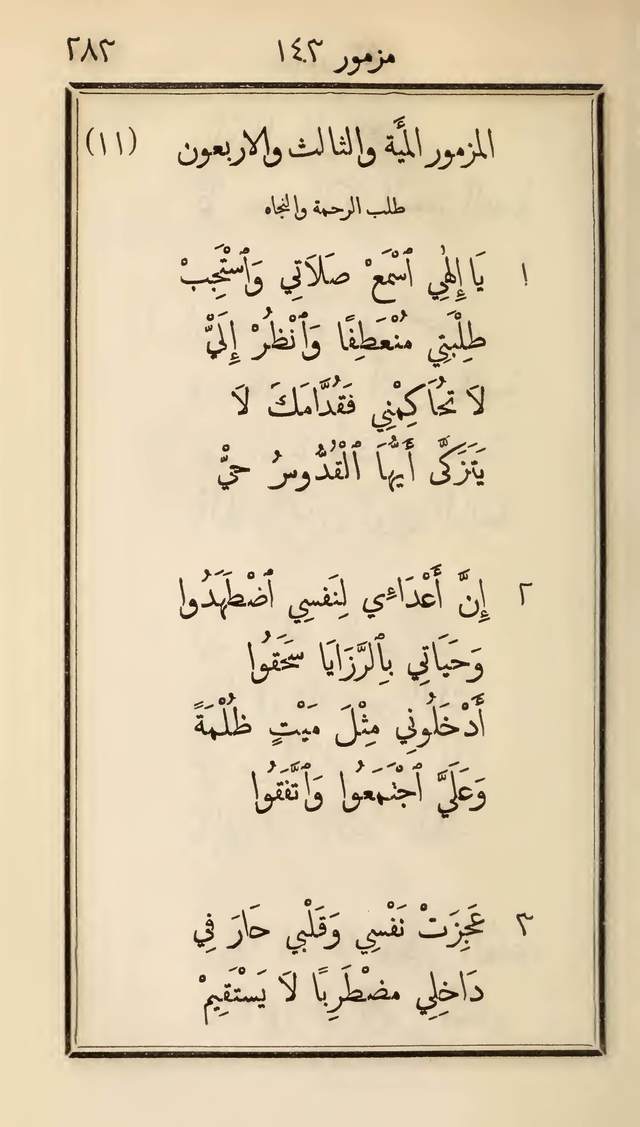 مزمور ١٤٣ ٢٨٣
المزمور المأَية والثالث والاربعون (١١)
طلب الرحمة والنجاه
١ يَا إِلٰهِي ٱسْمَعْ صَلَاتِي وَٱسْتَجِبْ
طِلْبَتِي مُنْعَطِفًا وَٱنْظُرْ إِلَيَّْ
لَا تُحَاكِمْنِي فَقُدَّامَكَ لَا
يَتَزَكَّى أَيُّهَا ٱلْقُدُّوسُ حَيّْ
٢ إِنَّ أَعْدَاءِي لِنَفسِي ٱضْطَهَدُوا
وَحَيَاتِي بِٱلرَّزَايَا سَحَقُوا
أَدْخَلُونِي مِثْلَ مَيْتٍ ظُلْمَةً
وَعَلَيَّ ٱجْتَمَعُوا وَٱتَّفَقُوا
٣ عَجِزَتْ نَفْسِي وَقَلْبِي حَارَ فِي
دَاخِلِي مضْطَرِبًا لَا يَسْتَقِيمْ